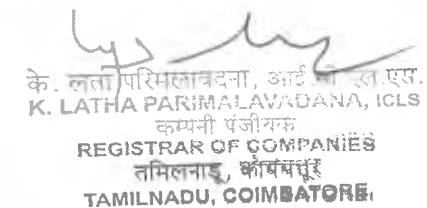 के. लता परिमलावदना, आई.सी.एल.एस.
K. LATHA PARIMALAVADANA, ICLS
कम्पनी पंजीयक
REGISTRAR OF COMPANIES
तमिलनाडू, कोयंबत्तूर
TAMILNADU, COIMBATORE